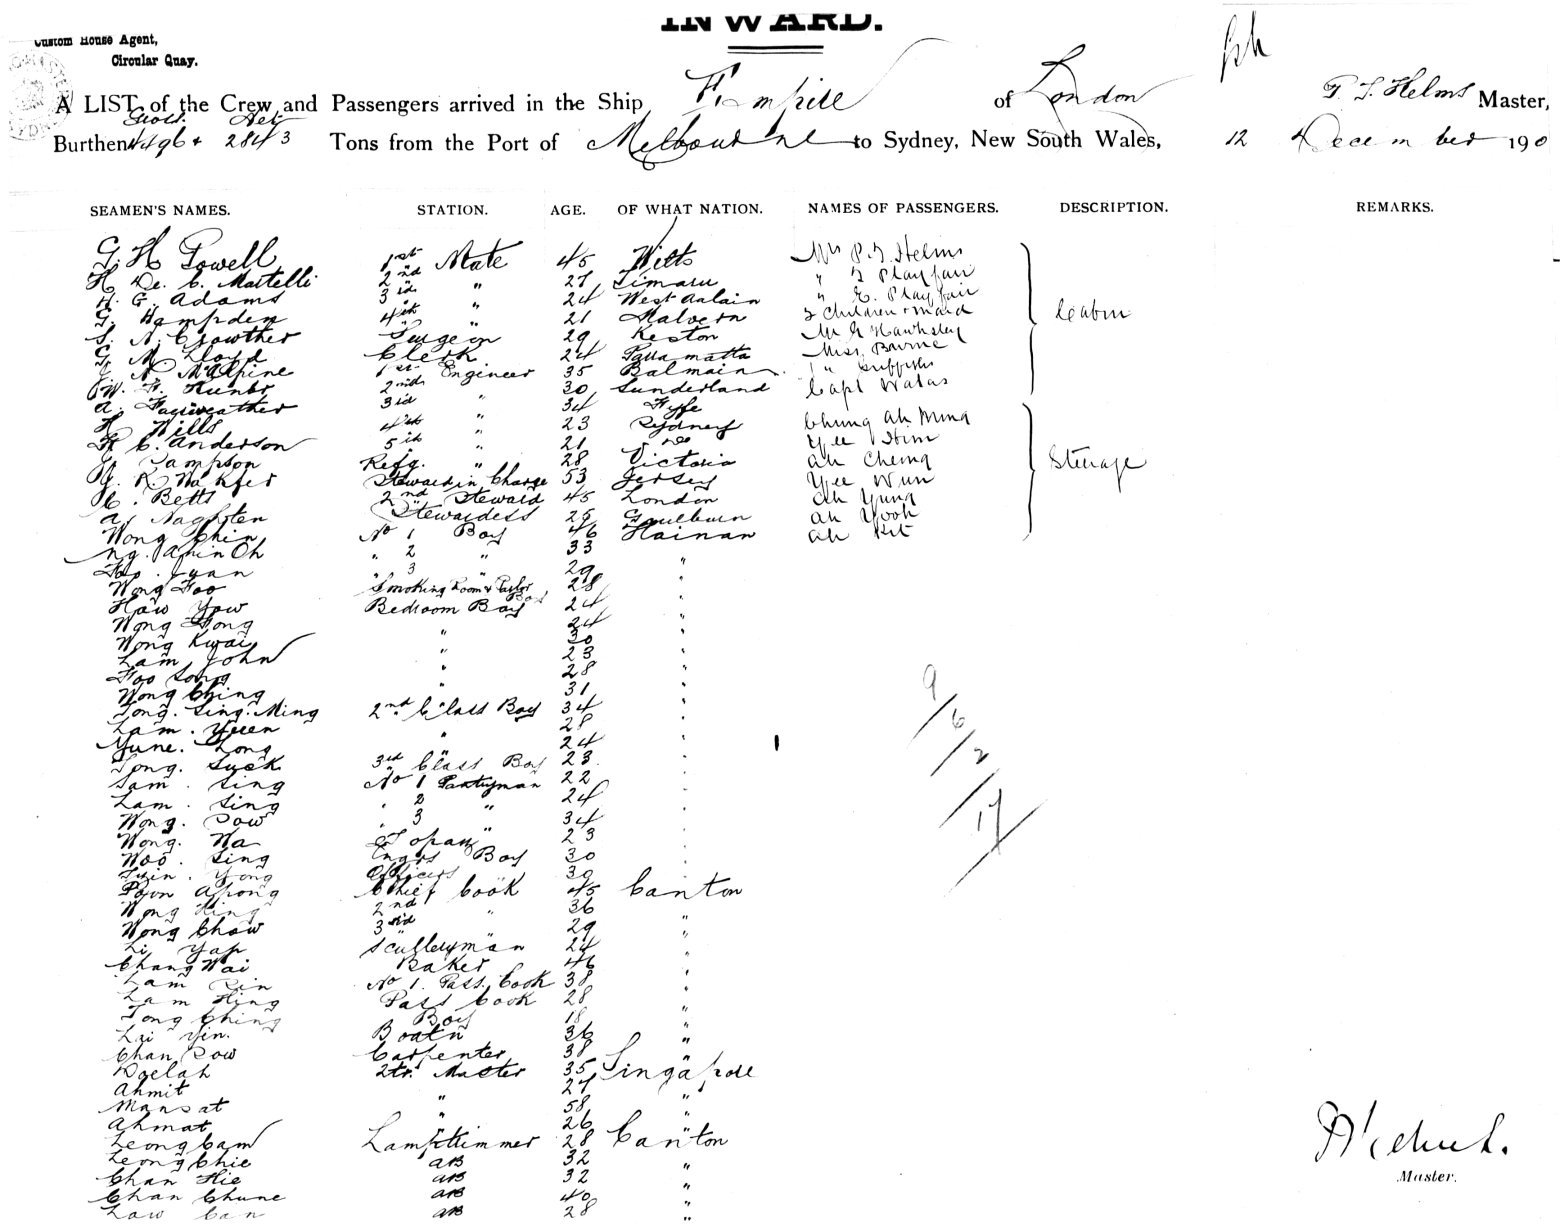 INWARD.
Custom House Agent,
Circular Quay.
A LIST of the Crew and Passengers arrived in the Ship Empire of London P. T. Helms Master,
Gross. Net
Burthen 4496 & 2843 Tons from the Port of Melbourne to Sydney, New South Wales, 12 December 190
SEAMEN'S NAMES. STATION. AGE. OF WHAT NATION. NAMES OF PASSENGERS. DESCRIPTION. REMARKS.
G. H Powell 1st Mate 45 Wilts Mrs P. T Helms
H De. C. Martelli 2nd " 27 Timaru " T Playfair
H. G. Adams 3rd " 24 West " E. Playfair
G. Hampden 4th " 21 Malvern 2 Children & maid Cabin
S. N. Crowther Surgeon 29 Keston Mr G Hawksley
G M Lloyd Clerk 24 Parramatta Miss Burne
N McAlpine 1st Engineer 35 Balmain " Griffiths
W. F. Hunter 2nd " 30 Sunderland Capt
A. Fayrweather 3rd " 34 Fyfe
H Hills 4th " 23 Sydney Chung Ah Mung
H C. Anderson 5th " 21 Do Yee Him
Sampson Refg. " 28 Victoria Ah Cheong Steerage
G. R Steward in Charge 53 Jersey Yee Wun
C. Betts 2nd Steward 45 London Ah Yung
A. Naghten Stewardess 25 Goulburn Ah Yook
Wong Chin No 1 Boy 46 Hainan Ah Kit
Ng. Ah Oh " 2 " 33 "
Foo. Juan " 3 " 29 "
Wong Foo Smoking Room & Parlor Boy 28 "
How Yow Bedroom Boy 24 "
Wong Fong 24 "
Wong Kwai " 30 "
Lam John " 23 "
Foo Song " 28 "
Wong Ching " 31 "
Tong. Sing. Ming 2nd Class Boy 34 "
Lam. Yuen 28 "
Yune. Long " 24 "
Tong. Suck 3rd Class Boy 23 "
Sam. Sing No 1 Pantryman 22 "
Lam. Sing " 2 " 24 "
Wong. Sow " 3 " 34 "
Wong. Wa Topass 23 "
Woo. Sing Engrs Boy 30 "
Yong Officers 30 "
Poon Apong Chief Cook 45 Canton
Wong Hing 2nd " 36 "
Wong Chow 3rd " 29 "
Li Yap Sculleryman 24 "
Chang Wai Baker 46 "
Lam Sin No 1. Pass. Cook 38 "
Lam Hing Pass Cook 28 "
Tong Ching Boy 18 "
Lai Yin. Boatn 36 "
Chan Sow Carpenter 38 "
Doelah 2tr. Master 35 Singapore
Ahmit " 27 "
Mansat " 58 "
Ahmat " 26 "
Leong Cam Lamptrimmer 28 Canton
Leong Chie AB 32 "
Chan Hie AB 32 "
Chan Chune AB 40 "
Law Can AB 28 "
9/6/2/17
Master.